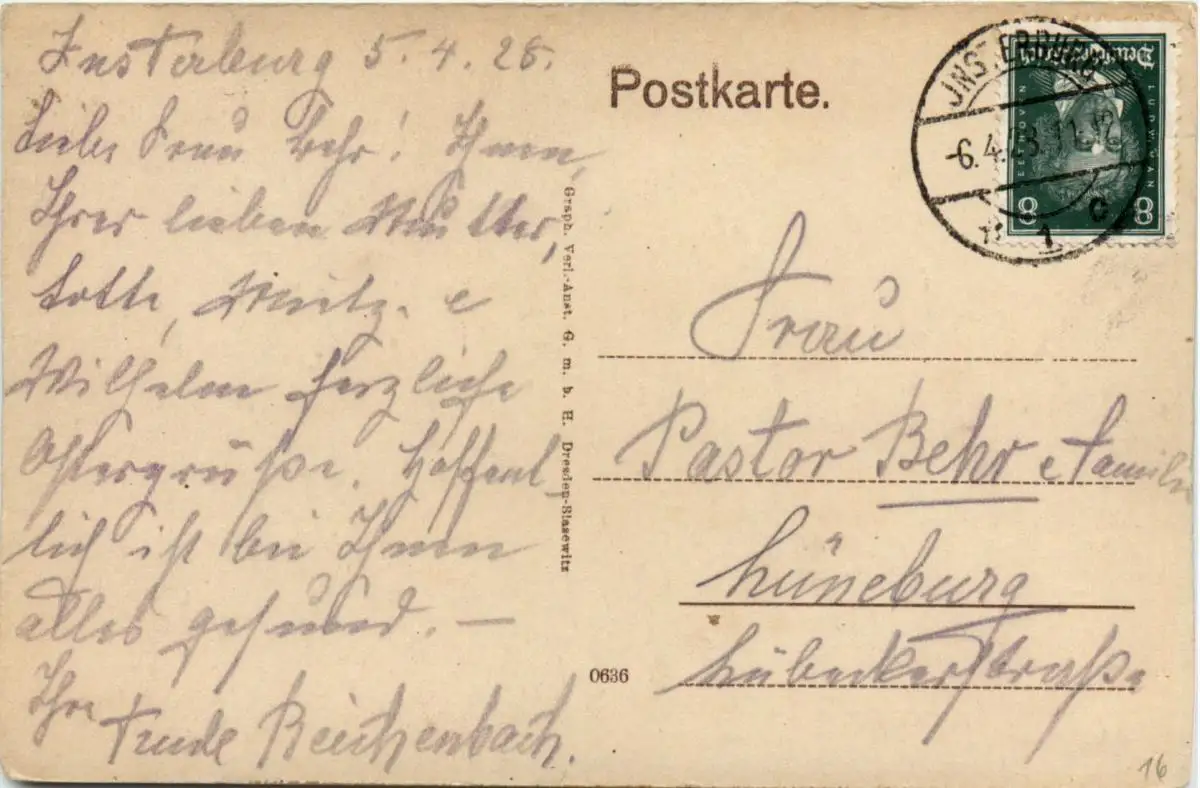 Insterburg 5. 4. 28.
Liebe Frau Behr! Ihnen,
Ihrer lieben Mutter,
Lotte, Moritz. e
Wilhelm herzliche
Ostergrüße. Hoffent_
lich ist bei Ihnen
alles gesund. —
Ihre Trude Reichenbach.
Postkarte.
INSTERBURG
-6.4.28. 11-12
* 1 c
Deutsches Reich
LUDWIG VAN
BEETHOVEN
8 8
Graph. Verl.-Anst. G. m. b. H. Dresden-Blasewitz
Frau
Pastor Behr e Familie
Lüneburg
Lübeckerstraße
0636
16